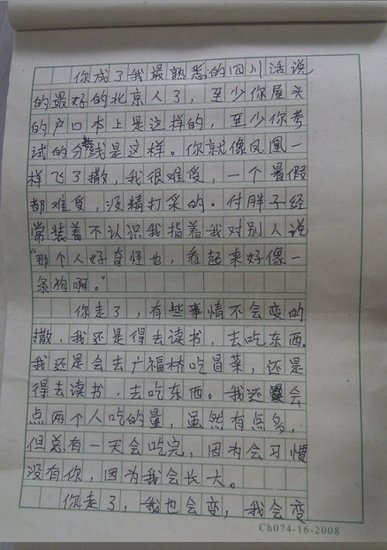 你成了我最熟悉的四川话说
的最好的北京人了，至少你屋头
的户口本上是这样的，至少你考
试的分数线是这样。你就像凤凰一
样飞了撒，我很难受，一个暑假
都难受，没精打采的。付胖子经
常装着不认识我指着我对别人说
“那个人好奇怪也，看起来好像一
条狗啊。”
你走了，有些事情不会变的
撒，我还是得去读书，去吃东西，
我还是会去广福桥吃冒菜，还是
得去读书，去吃东西。我还会
点两个人吃的量，虽然有点多，
但总有一天会吃完，因为会习惯
没有你，因为我会长大。
你走了，我也会变，我会变
Ch074-16-2008